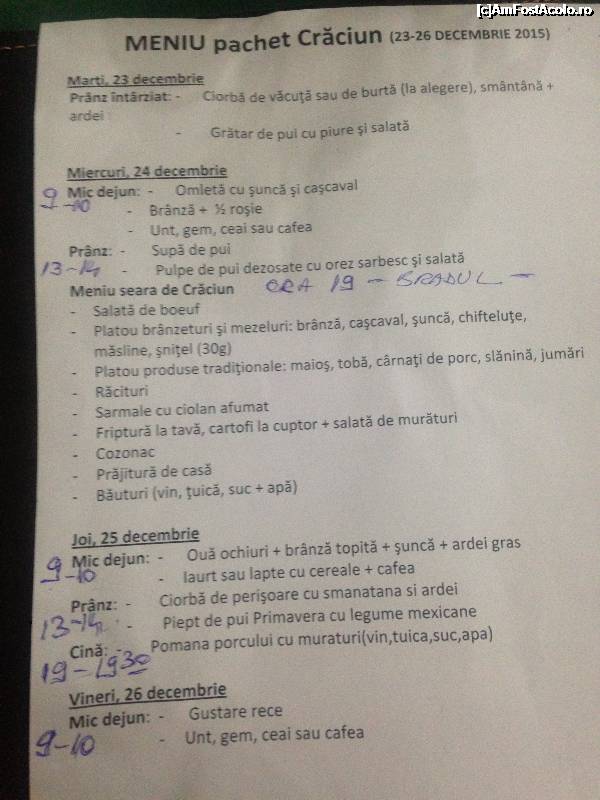 [c]AmFostAcolo.ro
MENIU pachet Crăciun (23-26 DECEMBRIE 2015)
Marti, 23 decembrie
Prânz întârziat: - Ciorbă de văcuţă sau de burtă (la alegere), smântână +
ardei
- Grătar de pui cu piure şi salată
Miercuri, 24 decembrie
9-10 Mic dejun: - Omletă cu şuncă şi caşcaval
- Brânză + ½ roşie
- Unt, gem, ceai sau cafea
Prânz: - Supă de pui
13-14 - Pulpe de pui dezosate cu orez sarbesc şi salată
Meniu seara de Crăciun ORA 19 - BRADUL -
- Salată de boeuf
- Platou brânzeturi şi mezeluri: brânză, caşcaval, şuncă, chifteluţe,
măsline, şniţel (30g)
- Platou produse tradiţionale: maioş, tobă, cârnaţi de porc, slănină, jumări
- Răcituri
- Sarmale cu ciolan afumat
- Friptură la tavă, cartofi la cuptor + salată de murături
- Cozonac
- Prăjitură de casă
- Băuturi (vin, ţuică, suc + apă)
Joi, 25 decembrie
9-10 Mic dejun: - Ouă ochiuri + brânză topită + şuncă + ardei gras
- Iaurt sau lapte cu cereale + cafea
Prânz: - Ciorbă de perişoare cu smanatana si ardei
13-14 - Piept de pui Primavera cu legume mexicane
Cină: - Pomana porcului cu muraturi(vin,tuica,suc,apa)
19-19 30
Vineri, 26 decembrie
Mic dejun: - Gustare rece
9-10 - Unt, gem, ceai sau cafea